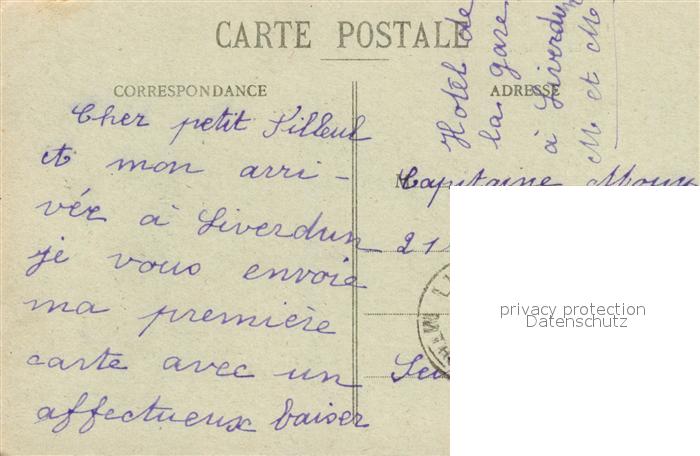 CARTE POSTALE
CORRESPONDANCE
ADRESSE
Cher petit Filleul
et mon arri-
vée à Liverdun
je vous envoie
ma première
carte avec un
affectueux baiser
Hotel de
la gare
à Liverdun
M et M
Capitaine
21
privacy protection
Datenschutz